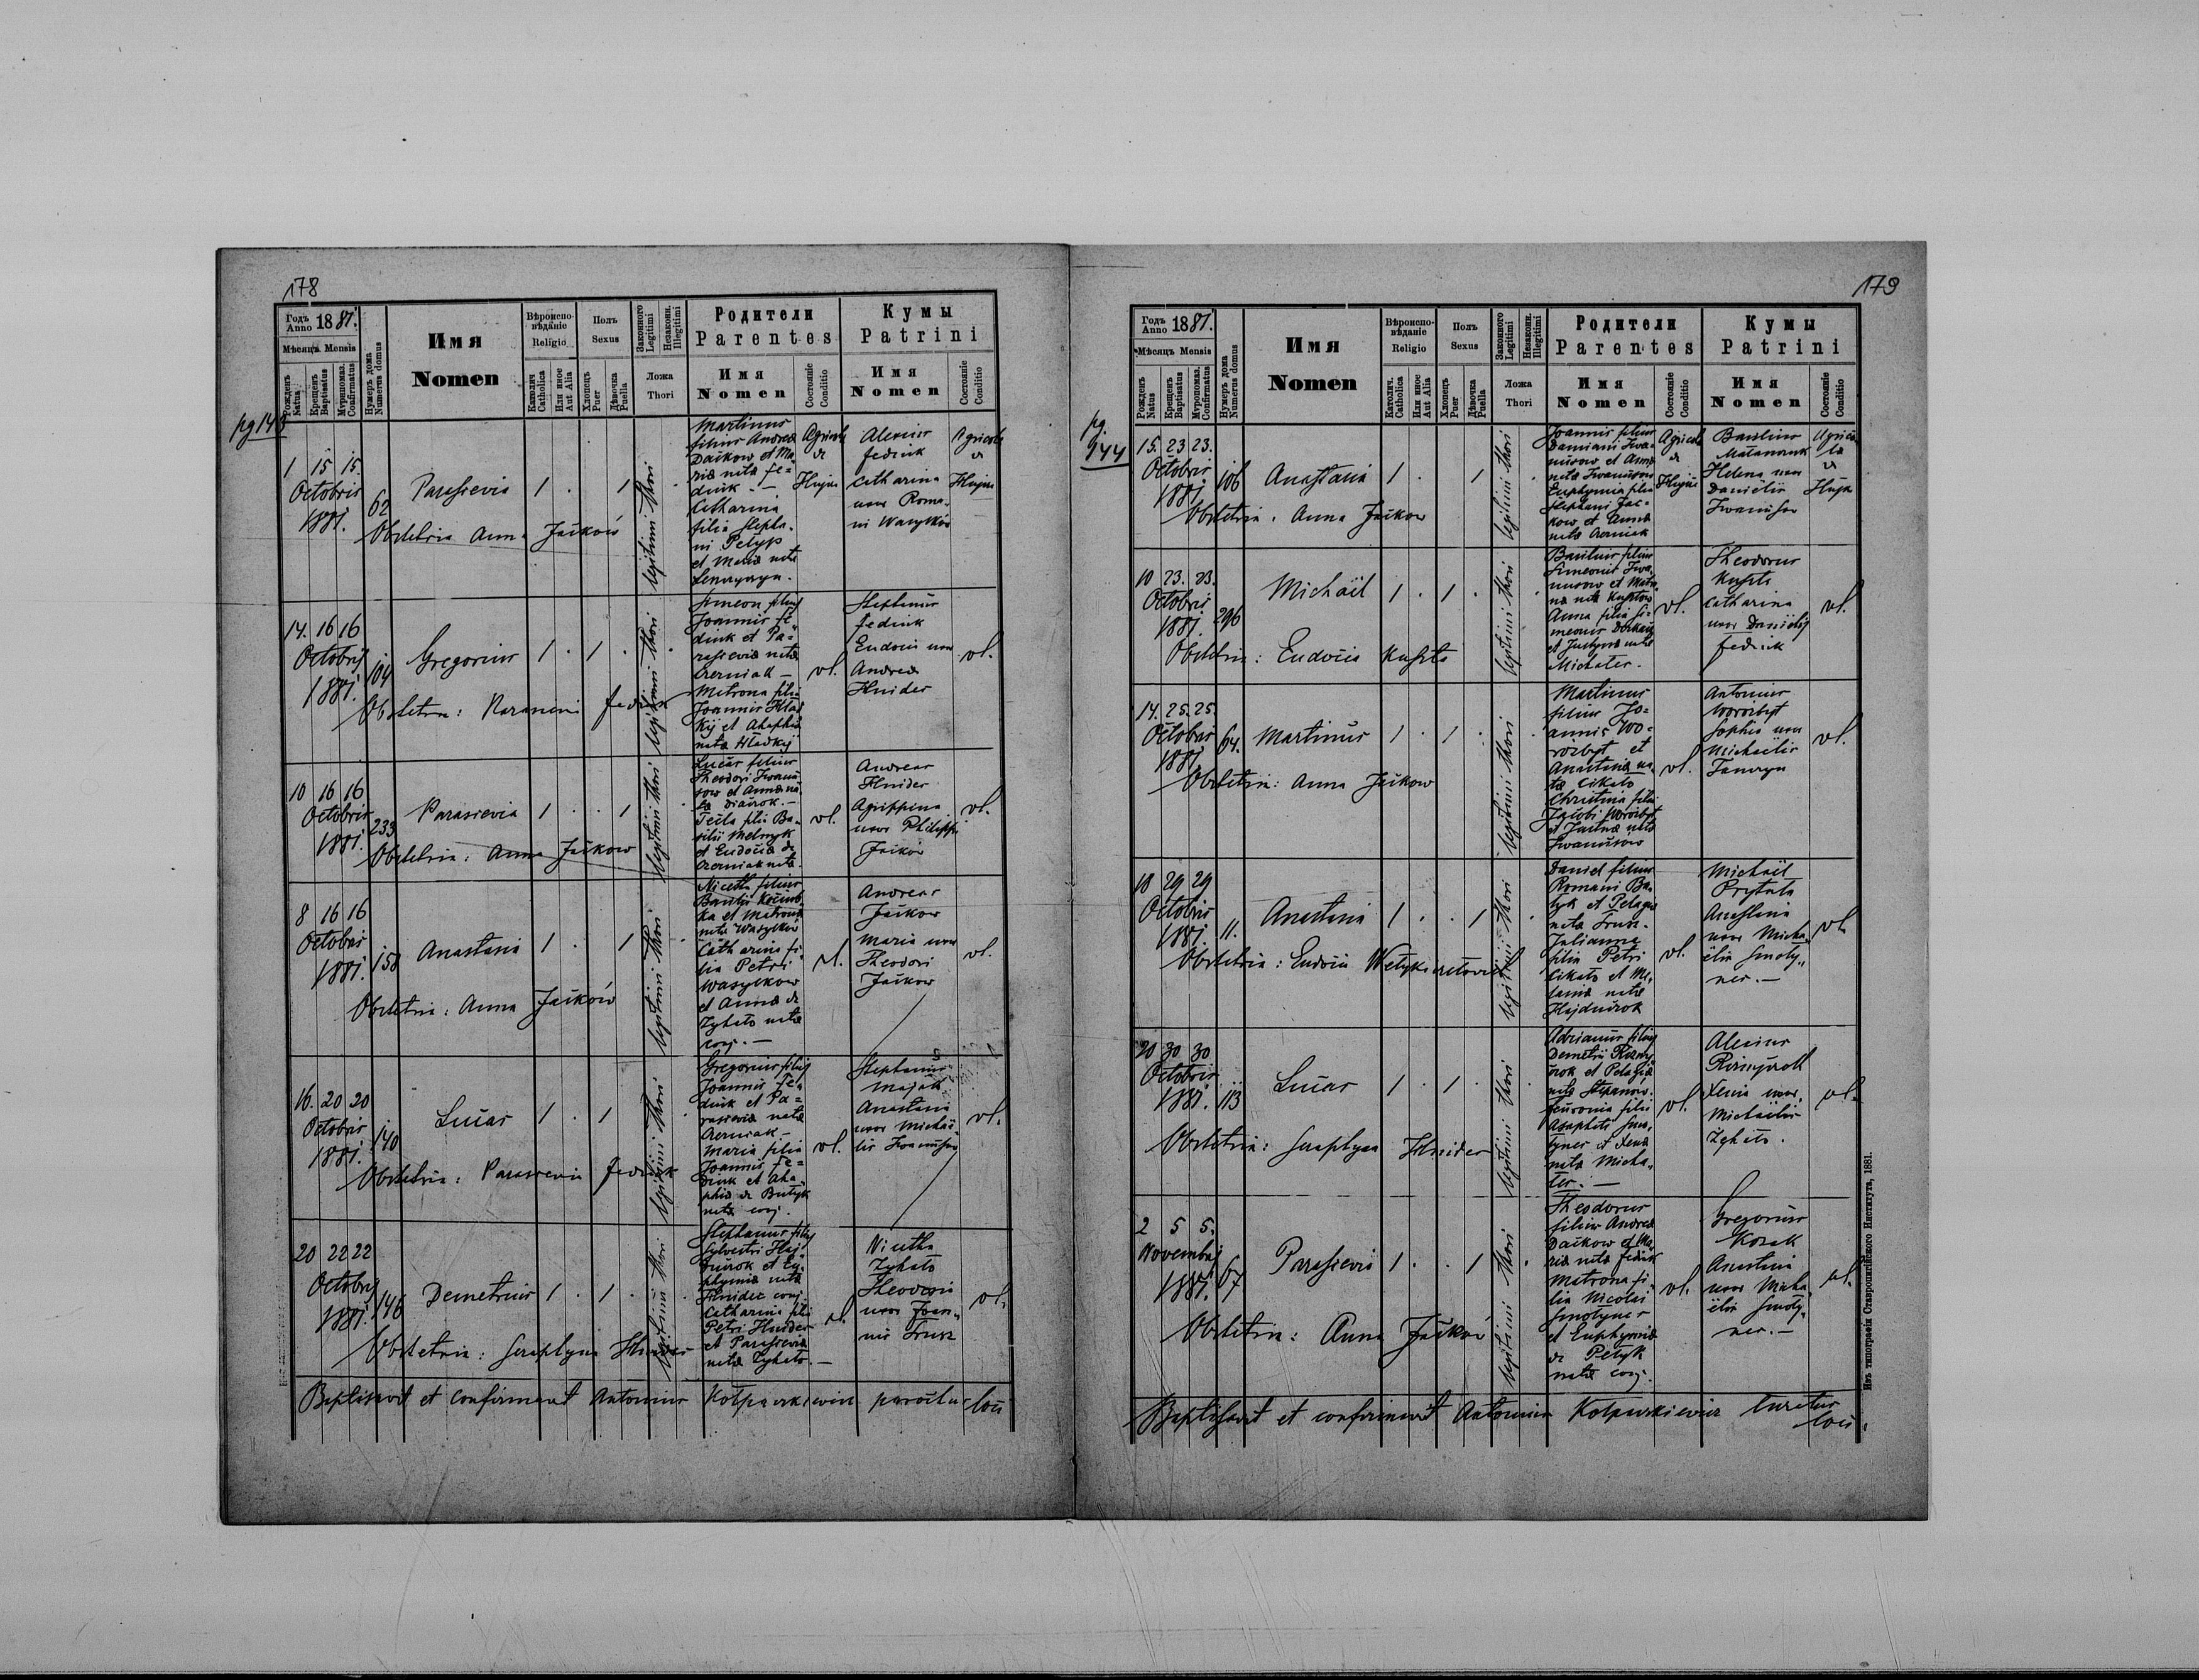 178
Годъ Anno 1881.
Мѣсяцъ Mensis
Рожденъ Natus
Крещенъ Baptisatus
Мѵропомаз. Confirmatus
Нумеръ дома Numerus domus
Имя
Nomen
Вѣроиспо-вѣданіе
Religio
Католич Catholica
Или иное Aut Alia
Полъ
Sexus
Хлопецъ Puer
Дѣвочка Puella
Законного Legitimi
Незаконн. Illegitimi
Ложа
Thori
Родители
Parentes
Имя
Nomen
Состояніе Conditio
Кумы
Patrini
Имя
Nomen
Состояніе Conditio
1 15 15.
Octobris
1881.
62
Parasievia
1 . 1
Obstetrix Anna Jaćków
legitimi thori
Martinus
filius Andreae
Daćkow et Ma-
ria nata Fe-
diuk. -
Catharina
filia Stepha-
ni Petyk
et Maria nata
Agricolae
Hujus
Alexius
Fediuk
Catharina
uxor Roma-
ni Wasyłków
Agricolae
Hujus
14. 16 16
Octobris
1881.
104
Gregorius
1 . 1 .
Obstetrix: Fediuk
legitimi thori
Simeon filius
Joannis Fe-
diuk et Pa-
rasievia nata
Czerniak -
Matrona filia
Joannis Hład-
kij et Ahaphia
nata Hładkij
vl.
Stephanus
Fediuk
Eudocia uxor
Andreae
Hnider
vl.
10 16 16
Octobris
1881.
233
Parasievia
1 . . 1
Obstetrix: Anna Jaćkow
legitimi thori
Lucas filius
Theodori Iwanu-
sow et Anna na-
ta Diaczok. -
Tecla filia Ba-
silii Melnyk
et Eudocia de
Czerniak nata.
vl.
Andreas
Hnider
Agrippina
uxor Philippi
Jaćków
vl.
8 16 16
Octobris
1881.
158
Anastasia
1 . 1
Obstetrix: Anna Jaćków
legitimi thori
Nicetha filius
Basilii
ka et Matrona
nata Wasyłków
Catharina fi-
lia Petri
Wasyłkow
et Anna de
Zyhało nata
conj. -
vl.
Andreas
Jaćkow
Maria uxor
Theodori
Jaćkow
vl.
16. 20 20
Octobris
1881.
140
Lucas
1 . 1
Obstetrix: Parasievia Fediuk
legitimi thori
Gregorius filius
Joannis Fe-
diuk et Pa-
rasievia nata
Czerniak. -
Maria filia
Joannis Fe-
diuk et Aha-
phia de Butyk
nata conj.
vl.
Stephanus
Majak
Anastasia
uxor Michaë-
lis Iwanusow
vl.
20 22 22
Octobris
1881.
146
Demetrius
1 . 1 .
Obstetrix: Seraphyna Hnider
legitimi thori
Stephanus filius
Sylvestri Haj-
duczok et Eu-
phymia nata
Hnider conj.
Catharina filia
Petri Hnider
et Parasievia
nata Zyhało. -
vl.
Nicetha
Zyhało
Theodosia
uxor Joan-
nis Trusz
vl.
Baptisavit et confirmavit Antonius Kołpaczkiewicz parochus loci
179
Годъ Anno 1881.
Мѣсяцъ Mensis
Рожденъ Natus
Крещенъ Baptisatus
Мѵропомаз. Confirmatus
Нумеръ дома Numerus domus
Имя
Nomen
Вѣроиспо-вѣданіе
Religio
Католич. Catholica
Или иное Aut Alia
Полъ
Sexus
Хлопецъ Puer
Дѣвочка Puella
Законного Legitimi
Незаконн. Illegitimi
Ложа
Thori
Родители
Parentes
Имя
Nomen
Состояніе Conditio
Кумы
Patrini
Имя
Nomen
Состояніе Conditio
pg.
144
15. 23 23.
Octobris
1881.
106
Anastasia
1 . 1
Obstetrix. Anna Jaćkow
legitimi thori
Joannis filius
Damiani Iwa-
nusow et Anna
nata Iwanusow
Euphymia filia
Stephani Jać-
kow et Anna
nata Czerniak
Agricolae
Hujus
Basilius
Helena uxor
Danielis
Iwanusow
Agricolae
Hujus
10 23. 23.
Octobris
1881.
296
Michaël
1 . 1 .
Obstetrix: Eudocia
legitimi thori
Basilius filius
Simeonis Iwa-
nusow et Matro-
na nata
Anna filia Si-
meonis
et Justyna nata
vl.
Theodorus
Catharina
uxor Danielis
Fediuk
vl.
14. 25. 25.
Octobris
1881.
64.
Martinus
1 . 1 .
Obstetrix: Anna Jaćkow
legitimi thori
Martinus
filius Jo-
annis Wo-
robyt et
Anastasia na-
ta Cikało
Christina filia
Jacobi Worobyt
et nata
Iwanusów
vl.
Antonius
Worobyt
Sophia uxor
Michaëlis
vl.
18 29 29
Octobris
1881.
11.
Anastasia
1 . . 1
Obstetrix: Eudocia
legitimi thori
Daniel filius
Romani Ba-
tyk et Pelagia
nata Trusz.
Julianna
filia Petri
Cikało et Me-
lania nata
Hajduczok
vl.
Michaël
Prytuła
Anastasia
uxor Micha-
ëlis Smoły-
nec. -
vl.
20 30 30
Octobris
1881.
113
Lucas
1 . 1 .
Obstetrix: Seraphyna Hnider
legitimi thori
Adrianus filius
Demetrii
et Pelagia
nata Stepanów.
filia
vl.
Alexius
Xenia uxor
Michaëlis
Zyhało.
vl.
2 5 5.
Novembris
1881.
67
Parasievia
1 . . 1
Obstetrix: Anna Jaćków
legitimi thori
Theodorus
filius Andreae
Daćkow et Ma-
ria nata Fediuk
Matrona fi-
lia Nicolai
Smołynec
et Euphymia
de Petyk
nata conj.
vl.
Gregorius
Kozak
Anastasia
uxor Micha-
ëlis Smoły-
nec. -
vl.
Baptisavit et confirmavit Antonius Kołpaczkiewicz Curatus loci
Изъ типографіи Ставропигійского Института, 1881.